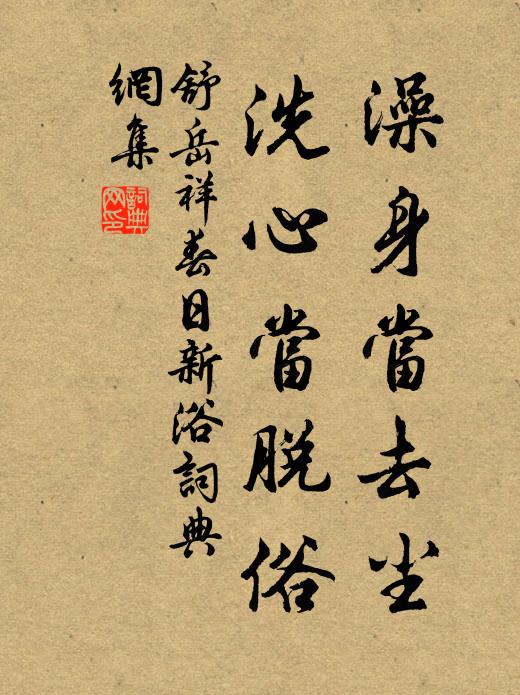 澡身當去尘
洗心當脱俗
舒岳祥春日新浴詞典
網集
詞典
网印